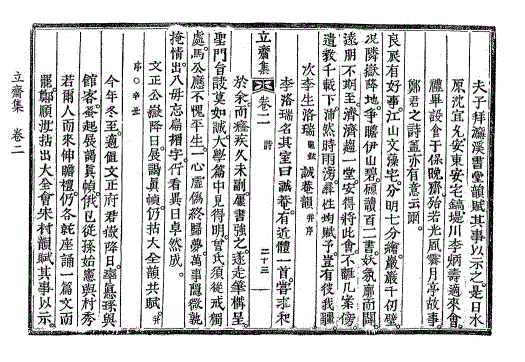 夫子拜濂溪書堂韻賦其事以示之是日水
原沈宜允安東安宅鎬堤川李炳壽適來會
禮畢設食于保晚齋殆若光風霽月亭故事
鄭君之詩蓋亦有意云爾
良辰有好事江山文藻宅分明七分繪巖巖千仞壁
况隣嶽降地爭瞻伊山碧碩讀百二書妖氛廓而闢
遠朋不期至濟濟趨一堂安得將此會不離几案傍
遺敎千載下沛然時雨滂尋性均賦予豈有彼我疆
次李生洛瑞誠菴韻幷序
李洛瑞名其室曰誠菴有近體一首嘗求和
立齋集 卷二 詩 二十三
於余而癃疾久未副屢書強之遂走筆構呈
聖門吾設莫如誠大學篇中見得明曾氏須從戒獨
處馬公應不愧平生一心虛僞終歸夢萬事隱微孰
掩情出入毋忘扁揭字佇看異日卓然成
文正公嶽降日展謁眞幀仍拈大全韻共賦幷
序○辛
今年冬至適値文正府君嶽降日率孫與
館客蚤起展謁眞幀俄已從孫始憲與村秀
若爾人而來伸瞻禮仍各就座誦一篇文而
罷鄭順汝拈出大全會朱村韻賦其事以示
立齋集 卷二